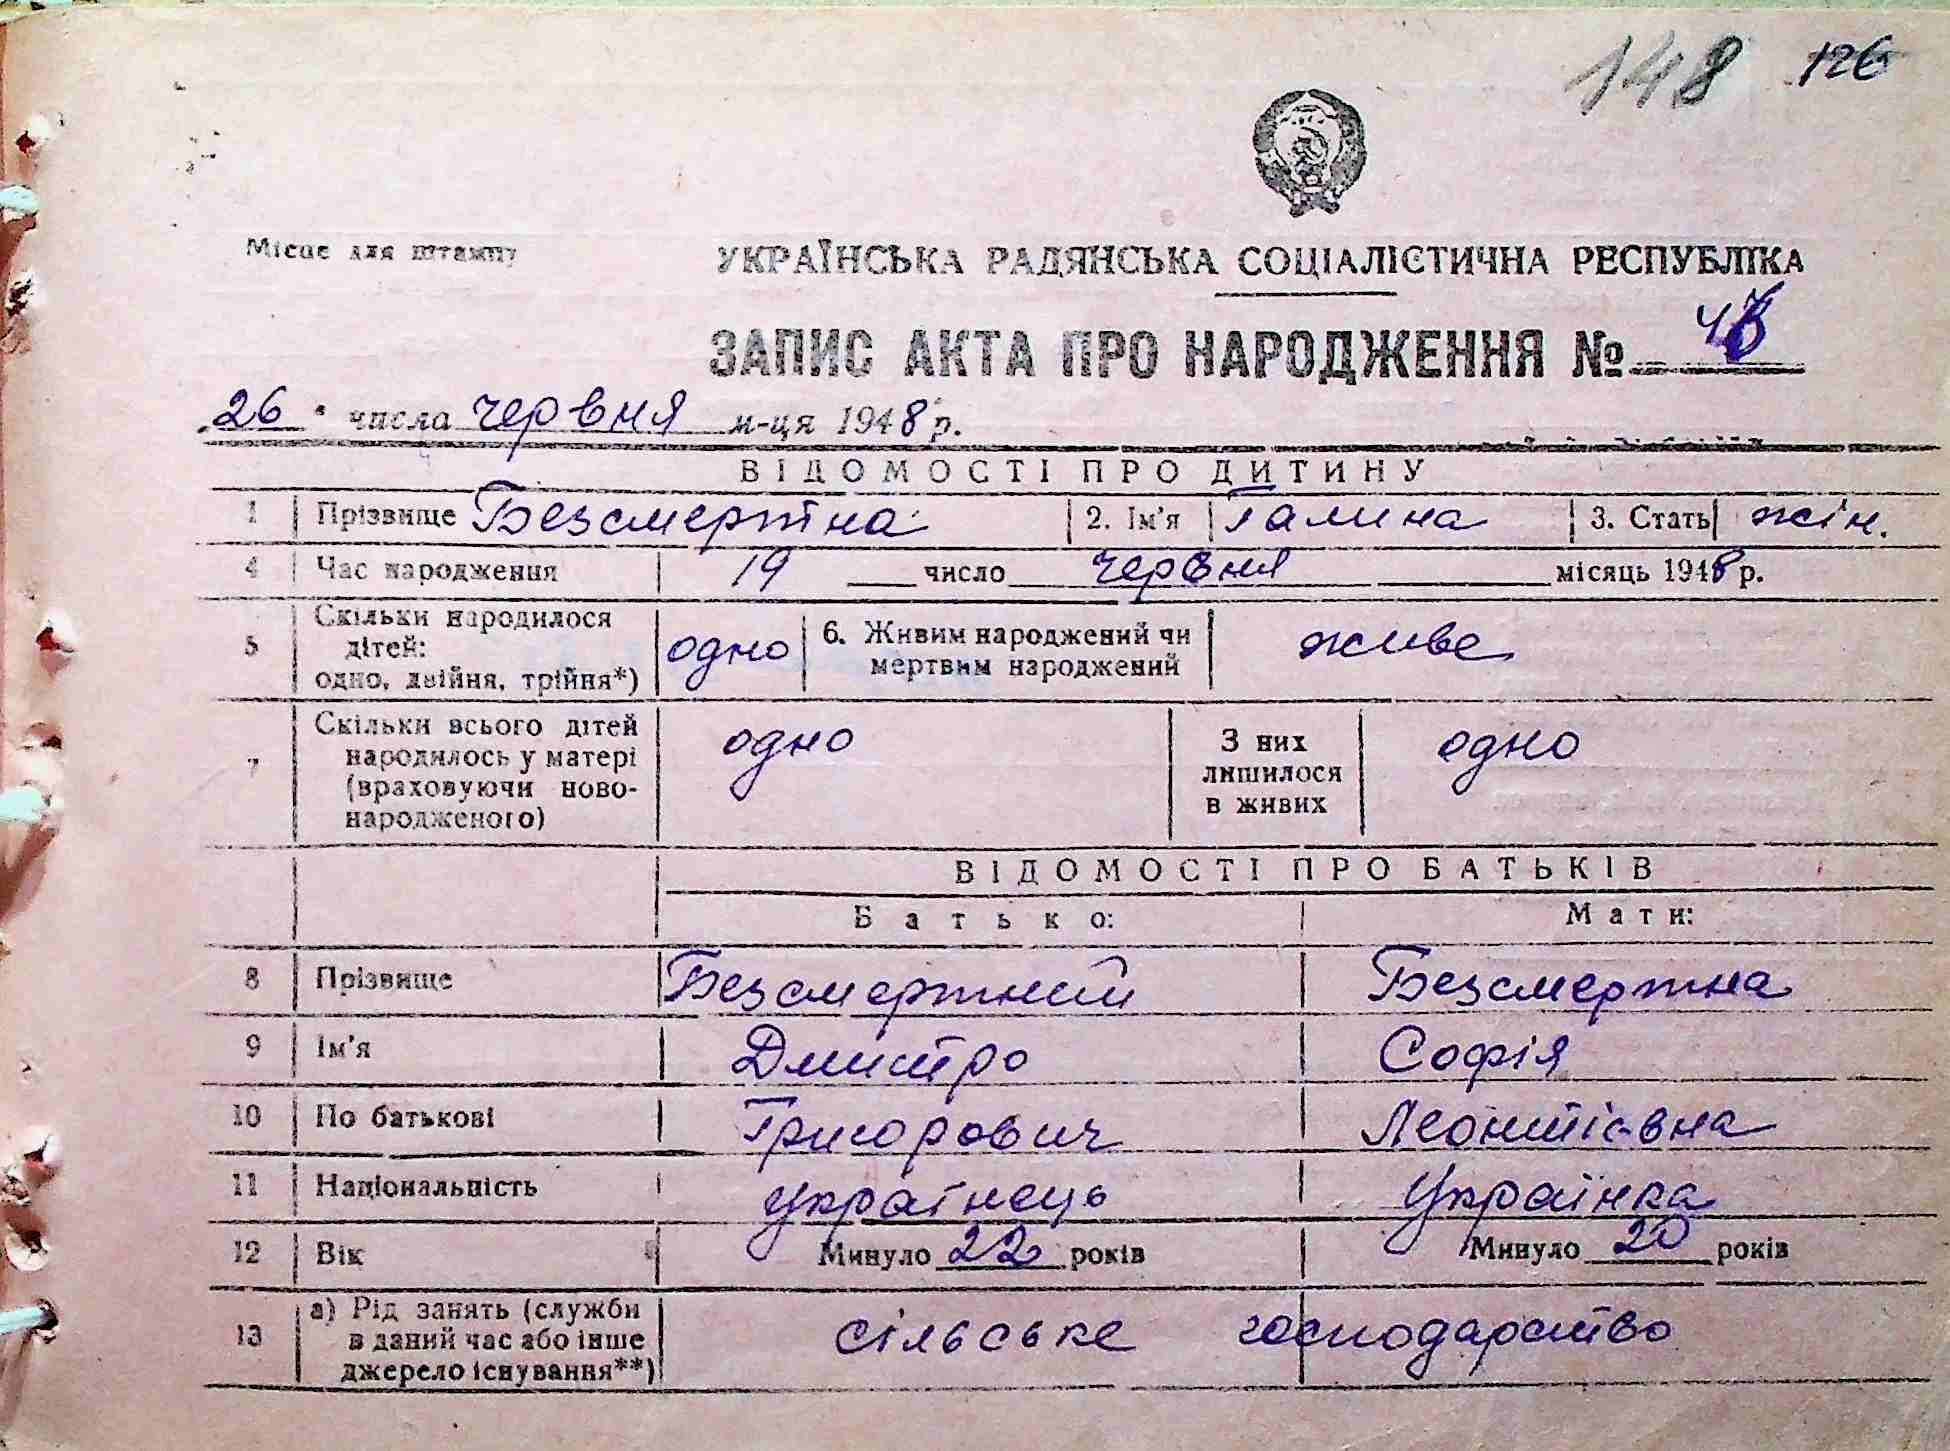 148 126
Місце для штампу
УКРАЇНСЬКА РАДЯНСЬКА СОЦІАЛІСТИЧНА РЕСПУБЛІКА
ЗАПИС АКТА ПРО НАРОДЖЕННЯ №
26 числа червня м-ця 1948 р.
ВІДОМОСТІ ПРО ДИТИНУ
1 Прізвище Безсмертна 2. Ім'я Галина 3. Стать жін.
4 Час народження 19 число червня місяць 1948 р.
5 Скільки народилося
дітей:
одно, двійня, трійня*) одно 6. Живим народжений чи
мертвим народжений живе
7 Скільки всього дітей
народилось у матері
(враховуючи ново-
народженого) одно З них
лишилося
в живих одно
ВІДОМОСТІ ПРО БАТЬКІВ
Батько: Мати:
8 Прізвище Безсмертний Безсмертна
9 Ім'я Дмитро Софія
10 По батькові Григорович Леонтіївна
11 Національність українець Українка
12 Вік Минуло 22 років Минуло 20 років
13 а) Рід занять (служби
в даний час або інше
джерело існування**) сільське господарство